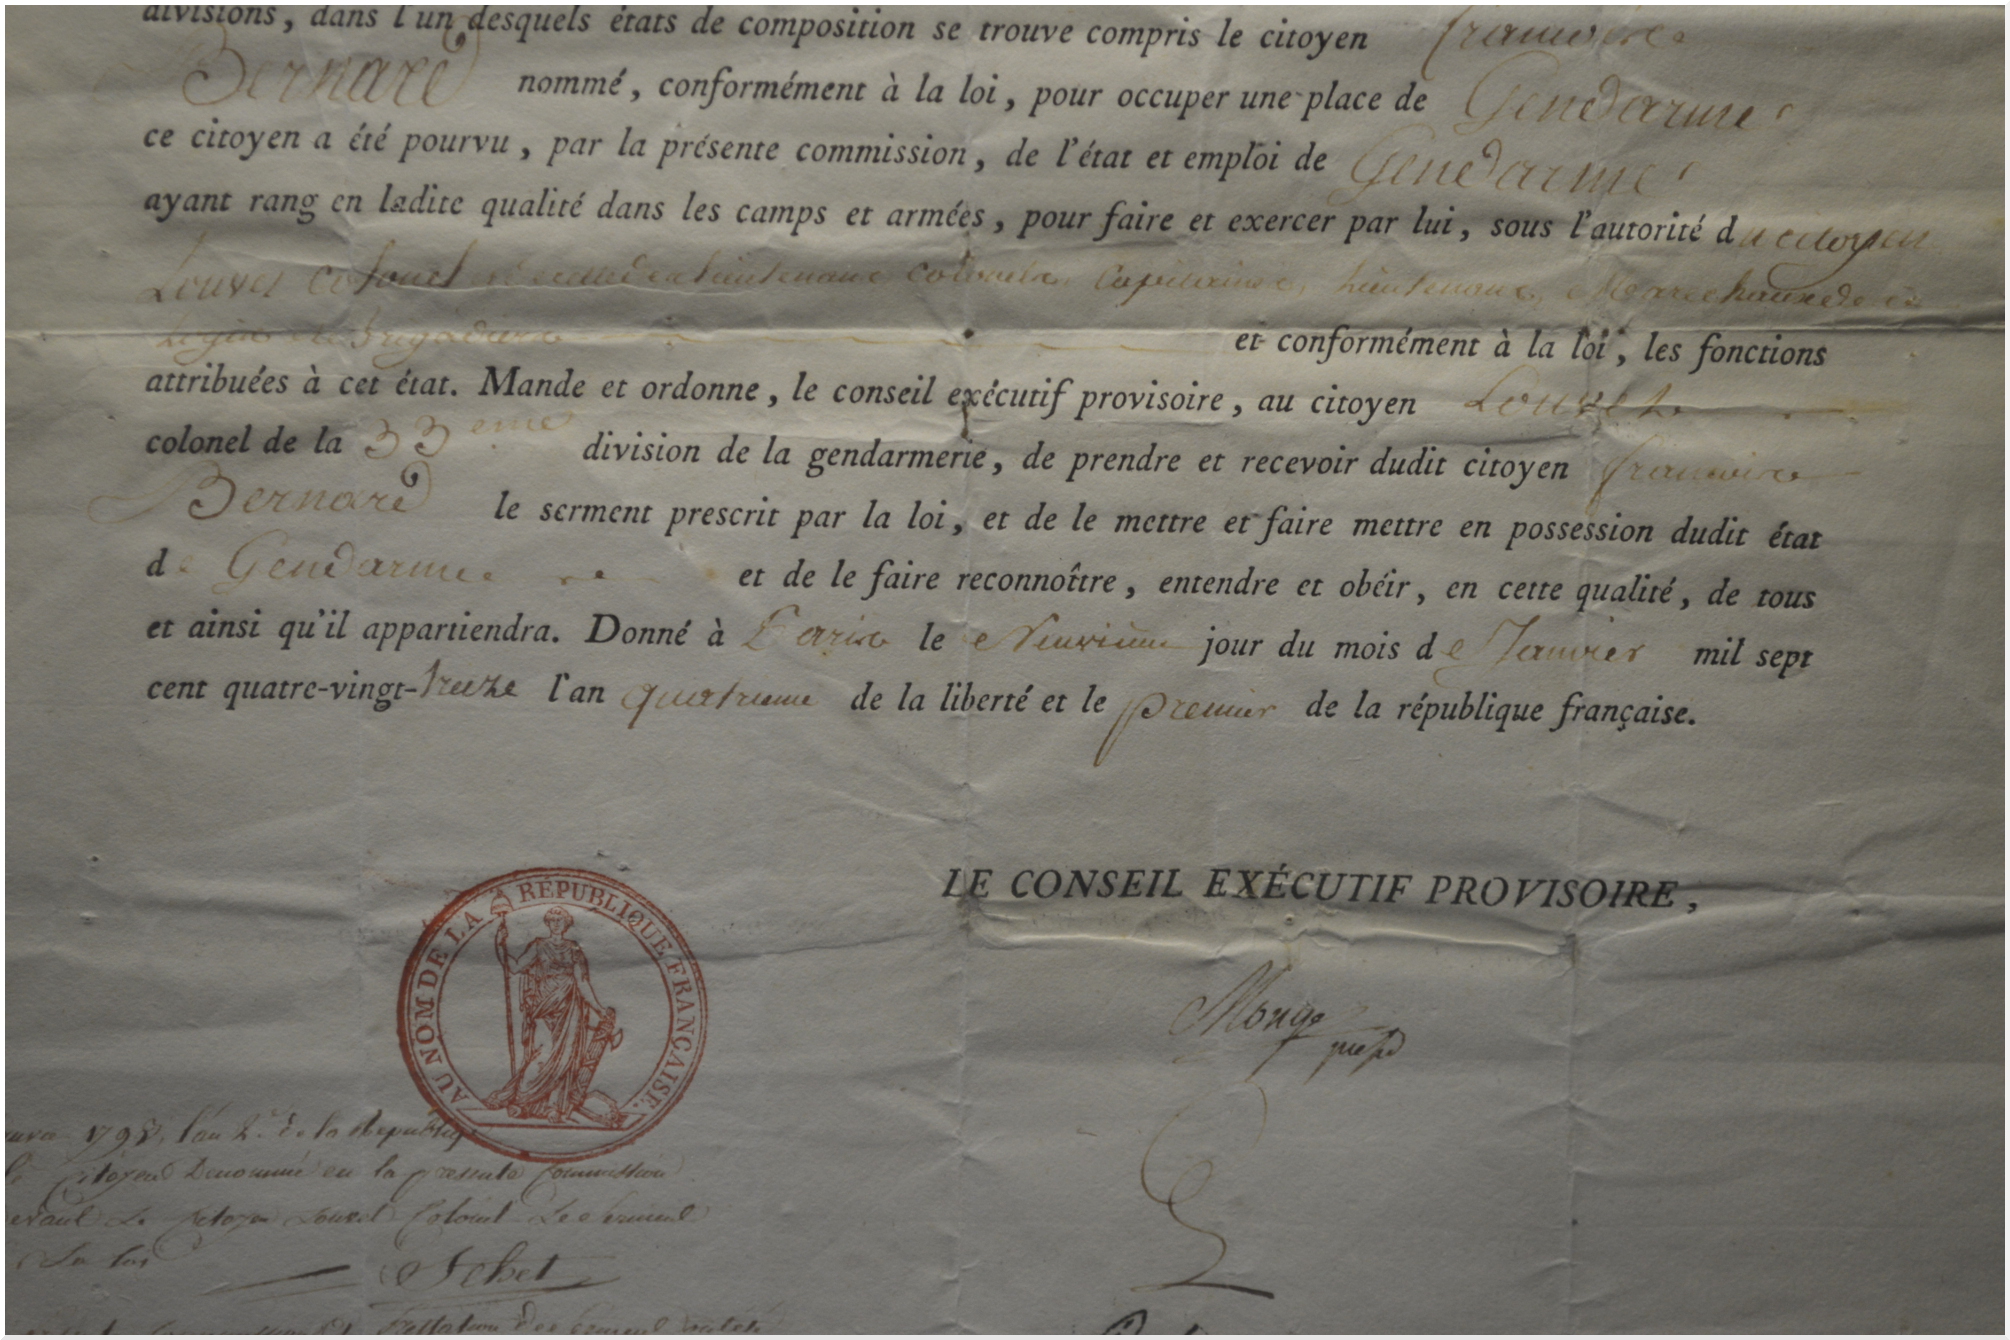 divisions, dans l'un desquels états de composition se trouve compris le citoyen francoise
Bernard nommé, conformément à la loi, pour occuper une place de Gendarme
ce citoyen a été pourvu, par la présente commission, de l'état et emploi de Gendarme
ayant rang en ladite qualité dans les camps et armées, pour faire et exercer par lui, sous l'autorité du citoyen
Louvet Colonel lieutenant colonels, Capitaines, Lieutenans, Marechauxde
Logis et brigadiers et conformément à la loi, les fonctions
attribuées à cet état. Mande et ordonne, le conseil exécutif provisoire, au citoyen Louvet
colonel de la 33eme division de la gendarmerie, de prendre et recevoir dudit citoyen francoise
Bernard le serment prescrit par la loi, et de le mettre et faire mettre en possession dudit état
de Gendarme et de le faire reconnoître, entendre et obéir, en cette qualité, de tous
et ainsi qu'il appartiendra. Donné à Paris le Neuvieme jour du mois de Janvier mil sept
cent quatre-vingt-treize l'an quatrieme de la liberté et le premier de la république française.
LE CONSEIL EXÉCUTIF PROVISOIRE,
AU NOM DE LA RÉPUBLIQUE FRANCAISE.
Monge
l'an 2. de la Republiq
citoyen Denommé en la presente Commission
Le citoyen Louvet Colonel Le Serment
La loi